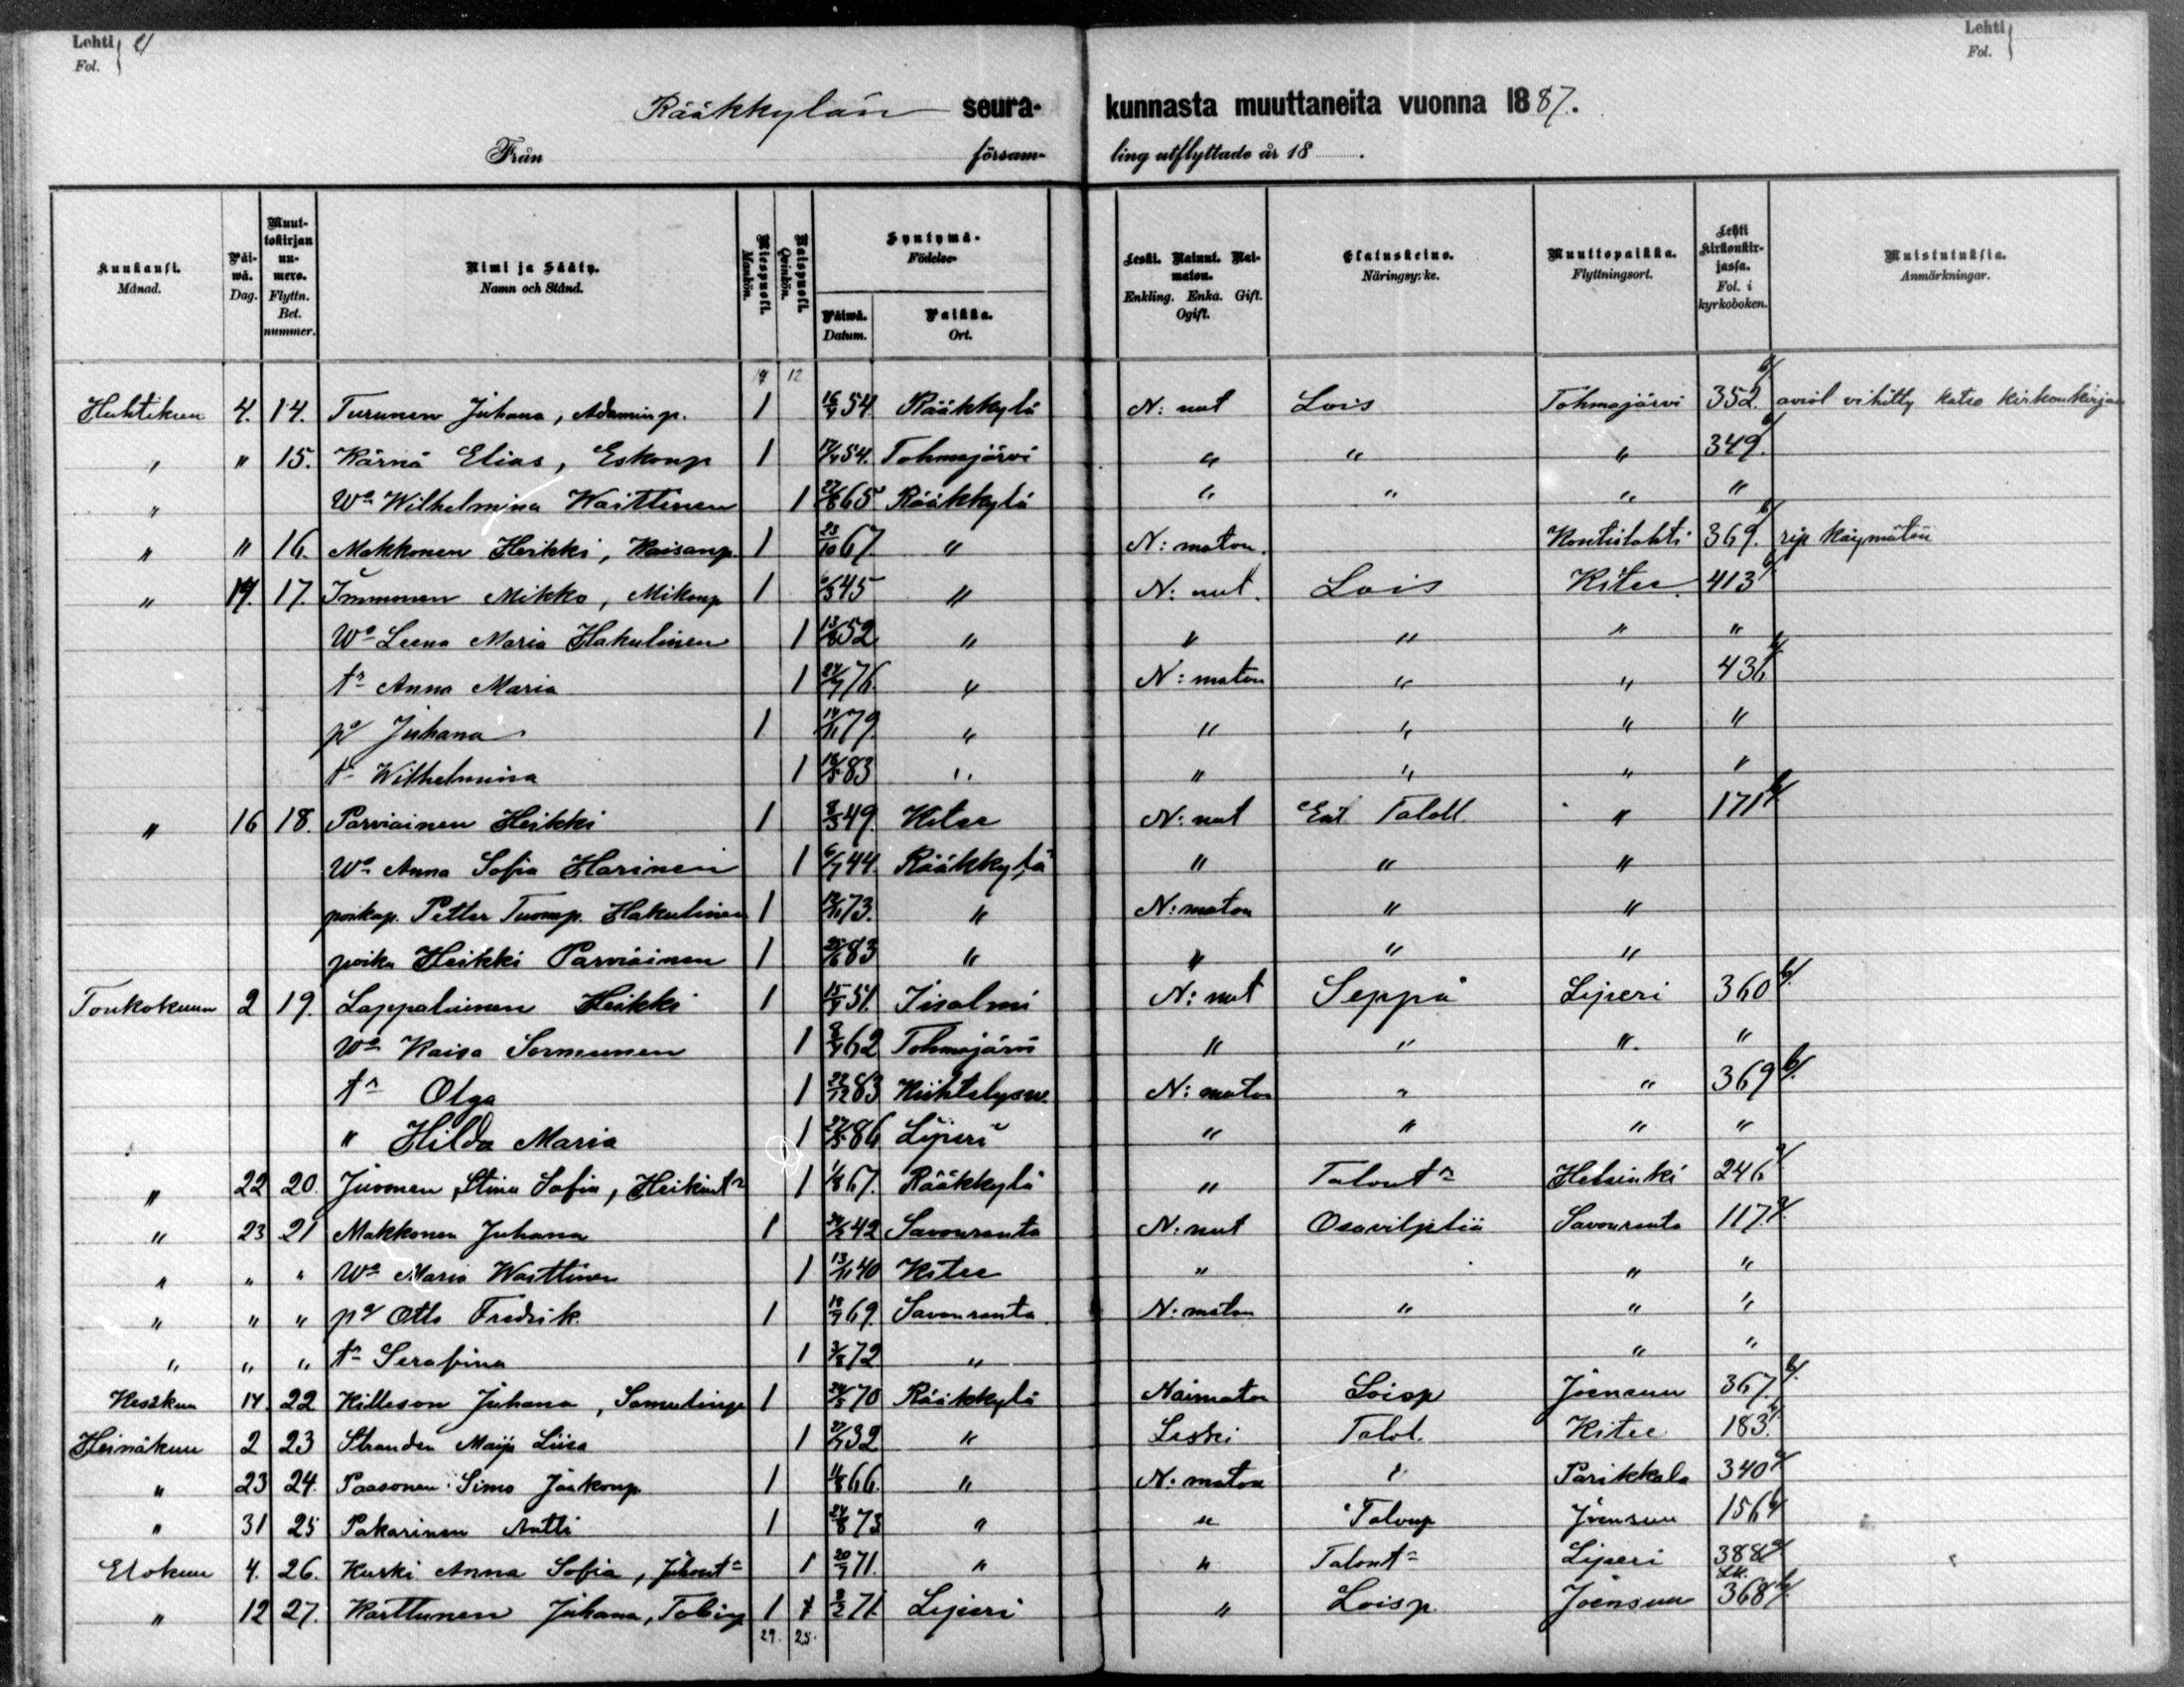 Lehti 4
Fol.
Lehti
Fol.
Rääkkylän seurakunnasta muuttaneita vuonna 1887.
Från församling utflyttade år 18 .
Kuukausi. Månad. | Päiwä. Dag. | Muuttokirjan numero. Flyttn. Bet. nummer. | Nimi ja Sääty. Namn och Stånd. | Miespuoli. Mankön. | Naispuoli. Qvinkön. | Syntymä- Födelse- | Päiwä. Datum. | Paikka. Ort. | Leski. Nainut. Naimaton. Enkling. Enka. Gift. Ogift. | Elatuskeino. Näringsyrke. | Muuttopaikka. Flyttningsort. | Lehti kirkonkirjassa. Fol. i kyrkoboken. | Muistutuksia. Anmärkningar.
19 12
Huhtikuu 4. 14. Turunen Juhana, Adamin p. 1 16/4 54 Rääkkylä N: nut Lois Tohmajärvi 352. aviol vihitty katso kirkonkirjan
" " 15. Kärnä Elias, Eskonp 1 54. Tohmajärvi " " " 349.
" Wo Wilhelmina Waittinen 1 65 Rääkkylä " " " "
" " 16. Makkonen Heikki, Kaisanp. 1 23/10 67. " N: maton. Kontiolahti 369. rip käymätön
" 14. 17. Immonen Mikko, Mikonp 1 45 " N: nut. Lois Kitee 413
Wo Leena Maria Hakulinen 1 52 " " " " "
tr Anna Maria 1 76. " N: maton " " 436
pa Juhana 1 79. " " " " "
tr Wilhelmina 1 83 " " " " "
" 16 18. Parviainen Heikki 1 8/3 49. Kitee N: nut Ent Taloll " 171
Wo Anna Sofia Harinen 1 44. Rääkkylä " " "
poikap. Petter Tuomp. Hakulinen 1 73. " N: maton " "
poika Heikki Parviainen 1 83 " " " "
Toukokuun 2 19. Lappalainen Heikki 1 51. Iisalmi N: nut Seppä Liperi 360 b/.
Wo Kaisa Sormunen 1 62 Tohmajärvi " " " "
tr Olga 1 22/12 83 Kiihtelysw. N: maton " " 369 b/.
" Hilda Maria 1 86 Liperi " " " "
" 22 20. Juvonen Stina Sofia, Heikint 1 1/8 67. Rääkkylä " Talont Helsinki 246
" 23 21 Makkonen Juhana 1 42 Savonranta N: nut Osaviljeliä Savonranta 117.
" " " Wo Maria Waittinen 1 13/11 40 Kitee " " "
" " " pa Otto Fredrik. 1 69. Savonranta. N: maton " " "
" " " tr Serafina 1 3/8 72 " " "
Kesäkuu 14. 22 Killeson Juhana, Samulinp 1 70 Rääkkylä Naimaton Loisp Joensuu 367.
Heinäkuu 2 23 Stranden Maija Liisa 1 32 " Leski Talol. Kitee 183.
" 23 24. Paasonen Simo Jaakonp. 1 66. " N: maton " Parikkala 340
" 31 25 Pakarinen Antti 1 73 " " Talonp Joensuu 156
Elokuu 4. 26. Kuski Anna Sofia, Juhont 1 71. " " Talont Liperi 388
Lk.
" 12 27. Karttunen Juhana, Tobinp 1 1 71. Liperi " Loisp. Joensuu 368
29. 25.